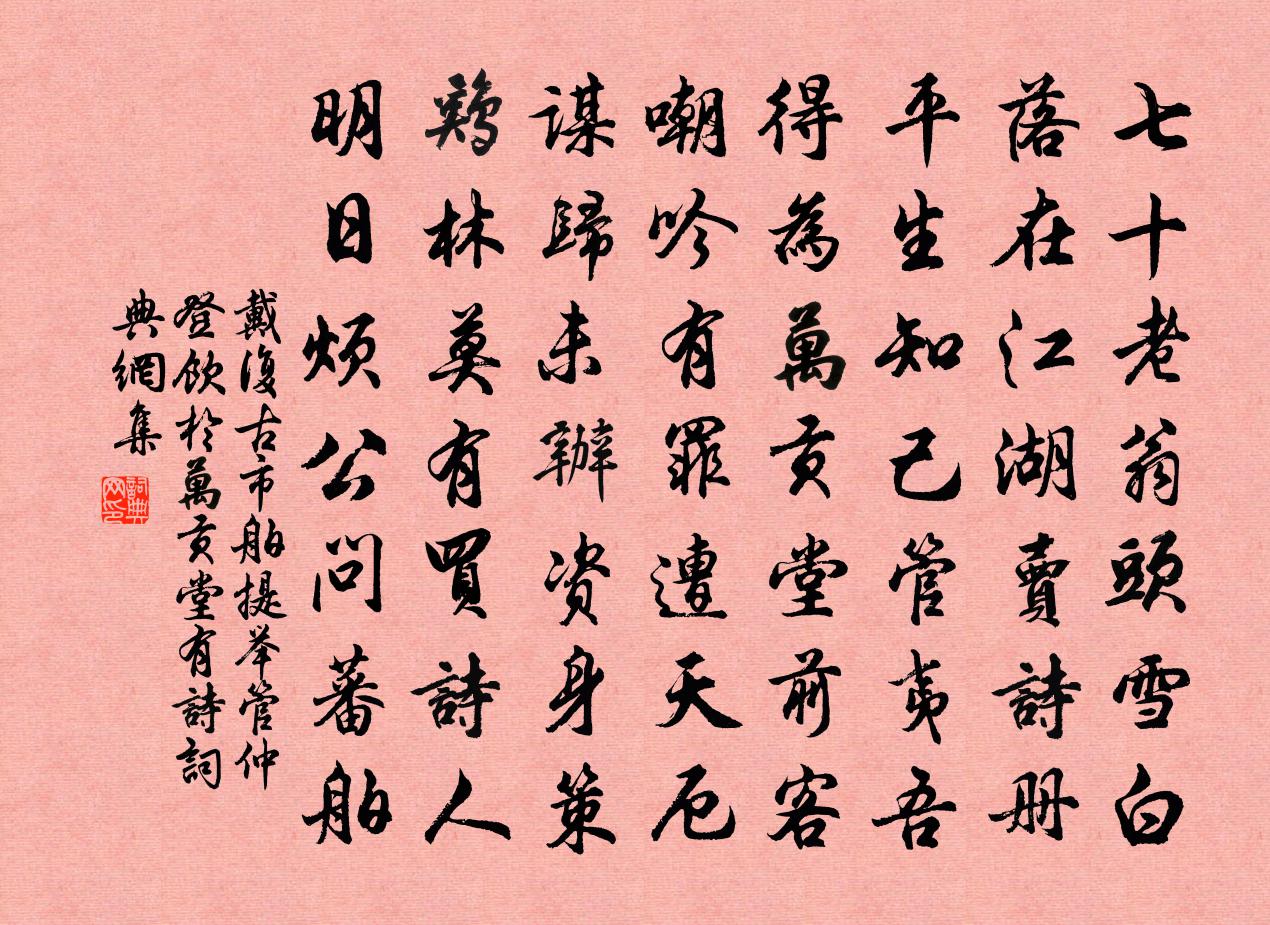 七十老翁頭雪白
落在江湖賣詩冊
平生知己管夷吾
得為萬貢堂前客
嘲吟有罪遭天厄
謀歸未辦資身策
鷄林莫有買詩人
明日煩公問蕃舶
戴復古市舶提举管仲
登飲於萬貢堂有詩詞
典網集
詞典網印